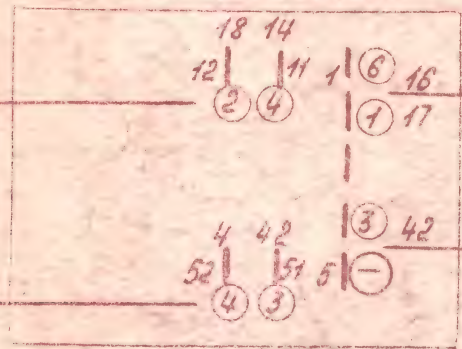 18 14
12 11 1 6 16
2 4 1 17
3
4 42 42
52 51 5 –
4 3